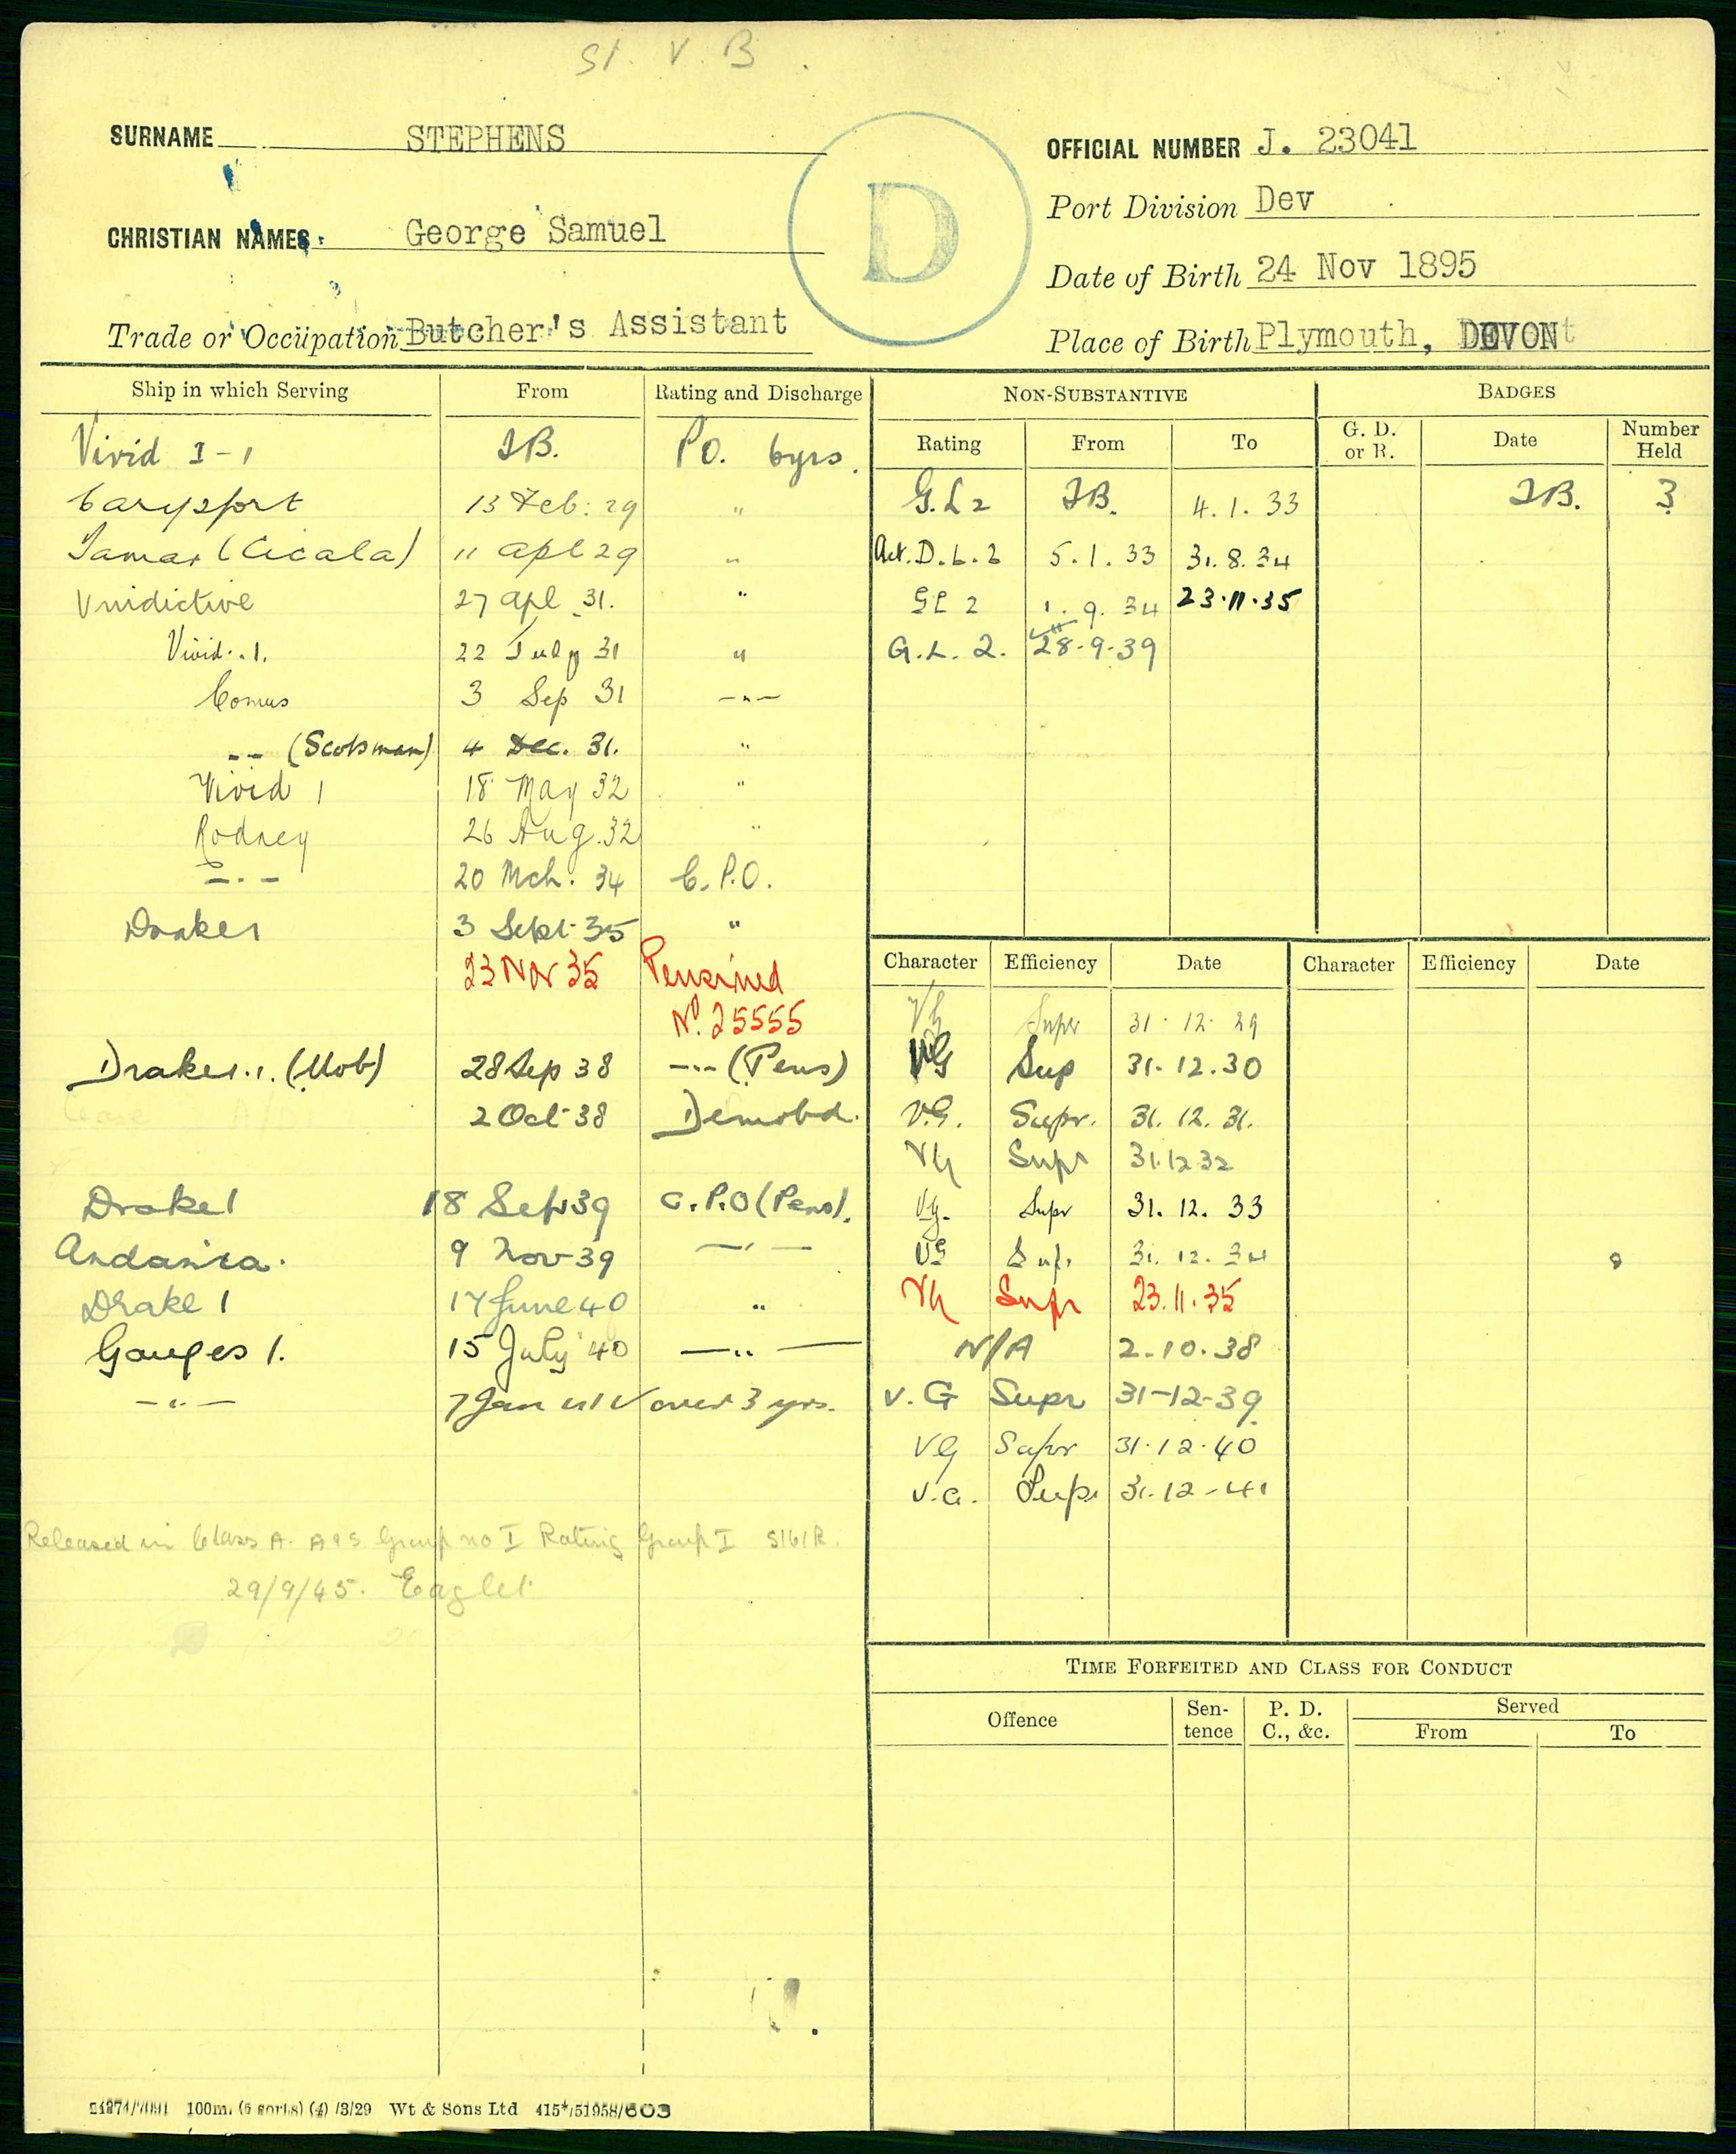 St. V. B.
SURNAME STEPHENS
OFFICIAL NUMBER J. 23041
D
Port Division Dev
CHRISTIAN NAMES: George Samuel
Date of Birth 24 Nov 1895
Trade or Occupation Butcher's Assistant
Place of Birth Plymouth, DEVON
Ship in which Serving From Rating and Discharge
Vivid I-1 IB. PO. 6yrs.
Carysfort 13 Feb: 29 "
Tamar (Cicala) 11 Apl 29 "
Vindictive 27 Apl 31. "
Vivid. 1. 22 July 31 "
Comus 3 Sep 31 -"-
-- (Scotsman) 4 Dec. 31. "
Vivid 1 18 May 32 "
Rodney 26 Aug. 32 "
-"- 20 Mch. 34 C.P.O.
Drake1 3 Sept 35 "
23 Nov 35 Pensioned
No. 25555
Drake 1. (Mob) 28 Sep 38 -"- (Pens)
2 Oct 38 Demobd.
Drake 1 18 Sep 39 C.P.O (Pens).
Andania. 9 Nov 39 -"-
Drake 1 17 June 40 "
Ganges 1. 15 July 40 -"-
-"- 7 Jan 41 over 3 yrs.
Released in Class A. A & S Group no I Rating Group I S161R.
29/9/45. Eaglet
NON-SUBSTANTIVE
Rating From To
G.L 2 IB. 4.1.33
Act. D.L.2 5.1.33 31.8.34
GL 2 1.9.34 23.11.35
G.L. 2. 28-9-39
BADGES
G. D. or R. Date Number Held
IB. 3
Character Efficiency Date Character Efficiency Date
VG Supr 31.12.29
VG Sup 31.12.30
V.G. Supr. 31.12.31.
VG Supr 31.12 32
V.g. Supr 31.12.33
VG Sup. 31.12.34
VG Supr 23.11.35
N/A 2-10-38
V.G Supr 31-12-39
VG Supr 31.12.40
V.G. Supr 31-12-41
TIME FORFEITED AND CLASS FOR CONDUCT
Offence Sentence P. D. C., &c. Served
From To
100m. (5 sorts) (4) /3/29 Wt & Sons Ltd 415*/51958/603